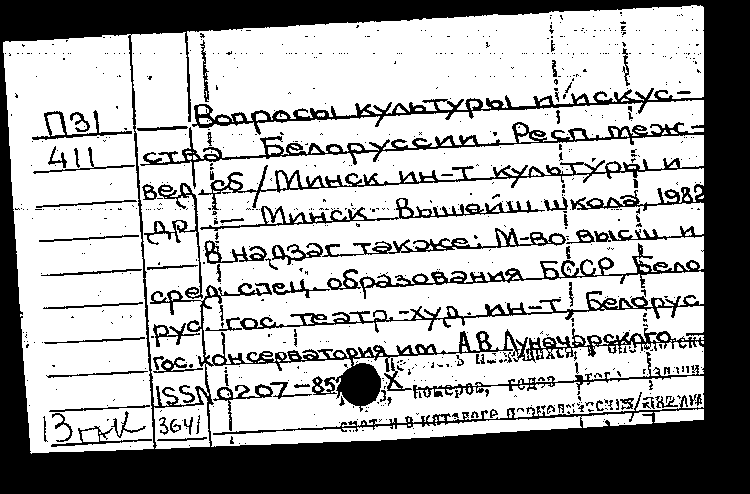 П31 Вопросы культуры и искус-
411 ства Белоруссии: Респ. меж-
вед. сб / Минск. ин-т культуры и
др — Минск: Вышэйш школа, 1982
В надзаг также: М-во высш. и
сред. спец. образования БССР, Бело
рус. гос. театр.-худ. ин-т, Белорус
гос. консерватория им. А.В. Луначарского —
ISSN 0207-85 Х номеров, годов
и в каталоге
3641